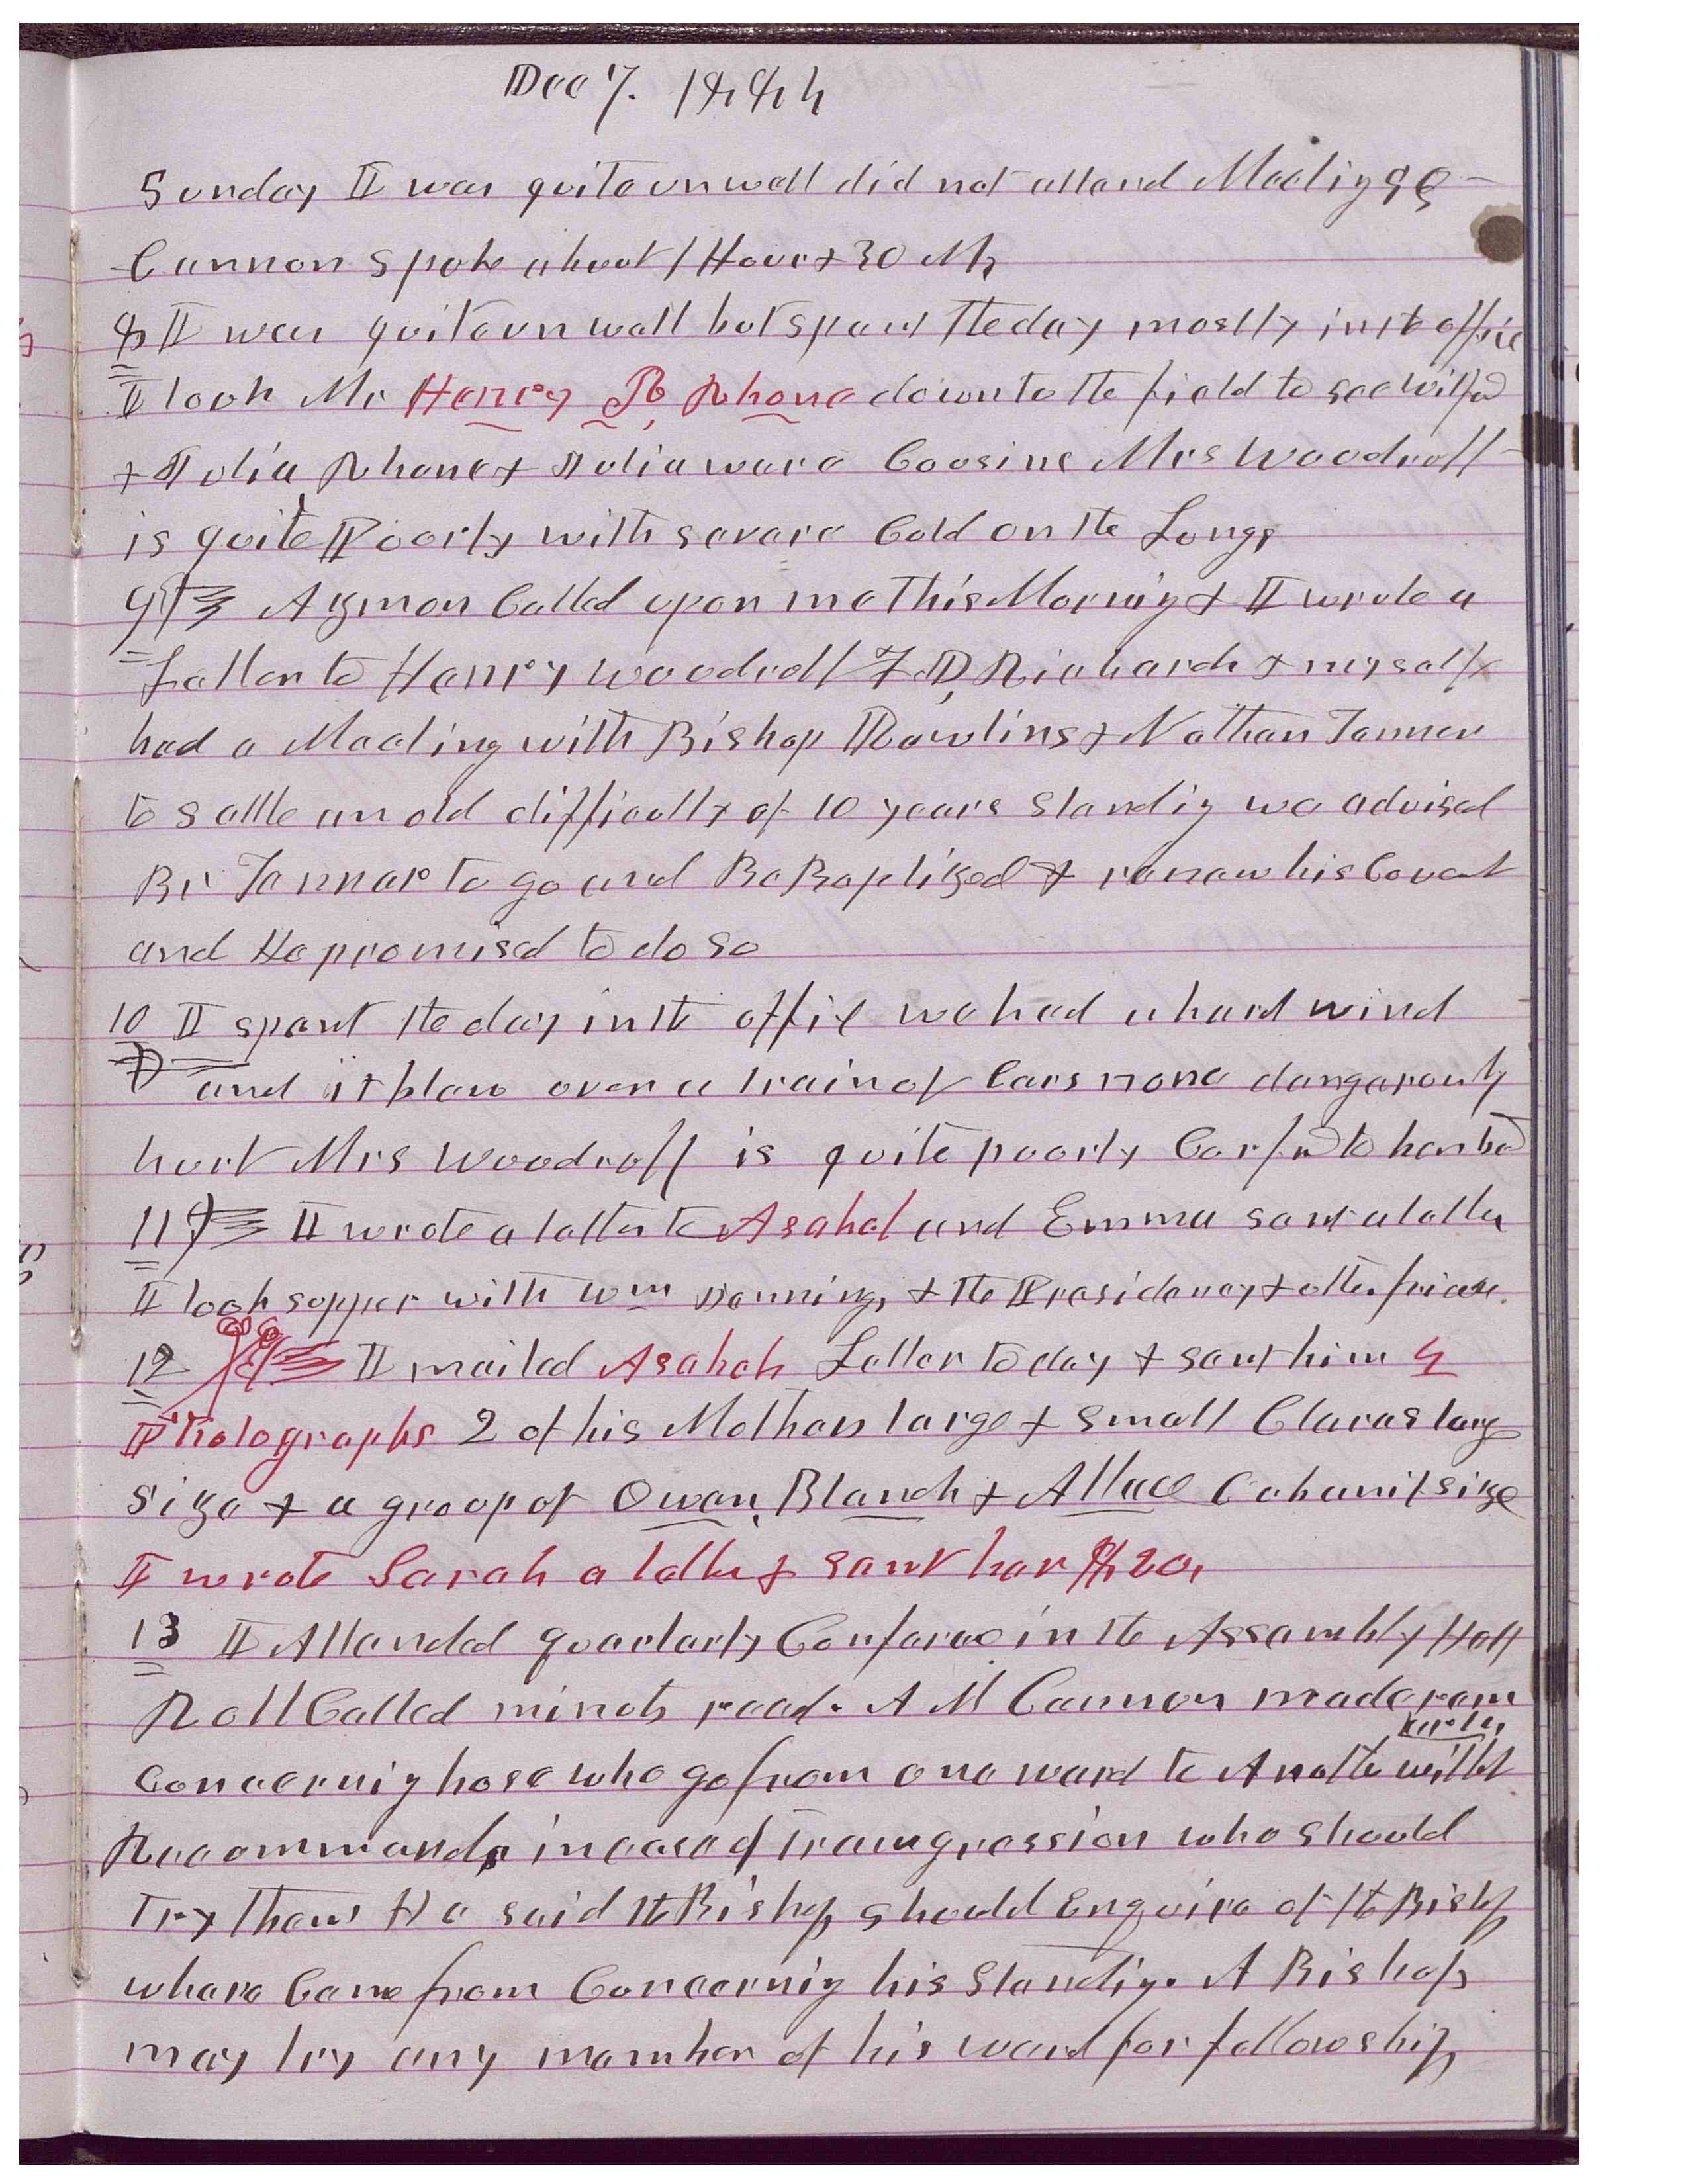 Dec 7. 1884
Sunday I was quite unwell did not attend Meeting G Q
Cannon Spoke about 1 Hour & 30 M,
8 I was quite unwell but spent the day mostly in the office
I took Mr Henry Rhone down to the field to see Wilfd
& Julia Rhone & Julia ware Coosins Mrs Woodruff
is quite Poorly with severe Cold on the Lungs
9 A Kymon Called upon me this Morning & I wrote a
Letter to Henry Woodruff F D Richards & myself
had a Meeting with Bishop Rawlins & Nathan Tanner
to settle an old difficulty of 10 years standig we advised
Br Tanner to go and Be Baptized & renew his Covent
and He promised to do so
10 I spent the day in the office we had a hard wind
and it blew over a train of Cars none dangerously
hurt Mrs Woodruff is quite poorly Confnd to her bed
11 I wrote a letter to Asahel and Emma sent a letter
I took supper with Wm Jenning, & the Presidency & other friends
12 I mailed Asahels Letter to day & sent him 4
Photographs 2 of his Mothers large & small Claras large
size & a group of Owen, Blanch & Allice Cabanit size
I wrote Sarah a letter & sent her $20,
13 I Attended quarterly Conferace in the Assembly Hall
Roll Called minuts read. A M Cannon made rem
arks,
Concernig hose who go from one ward to Another without
Recommends in case of Transgression who should
Try them He said the Bishop should Enquire of the Bishp
where Came from Concernig his Standig. A Bishop
may try any member of his ward for fellowship